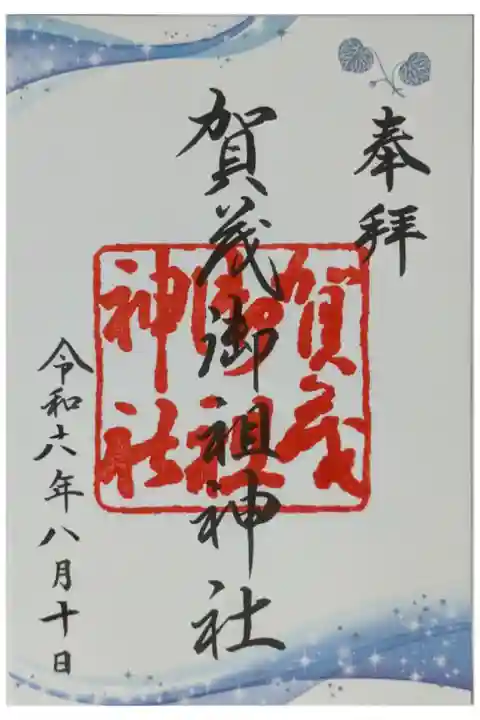 奉拝
賀茂御祖神社
賀茂
御祖
神社
令和六年八月十日